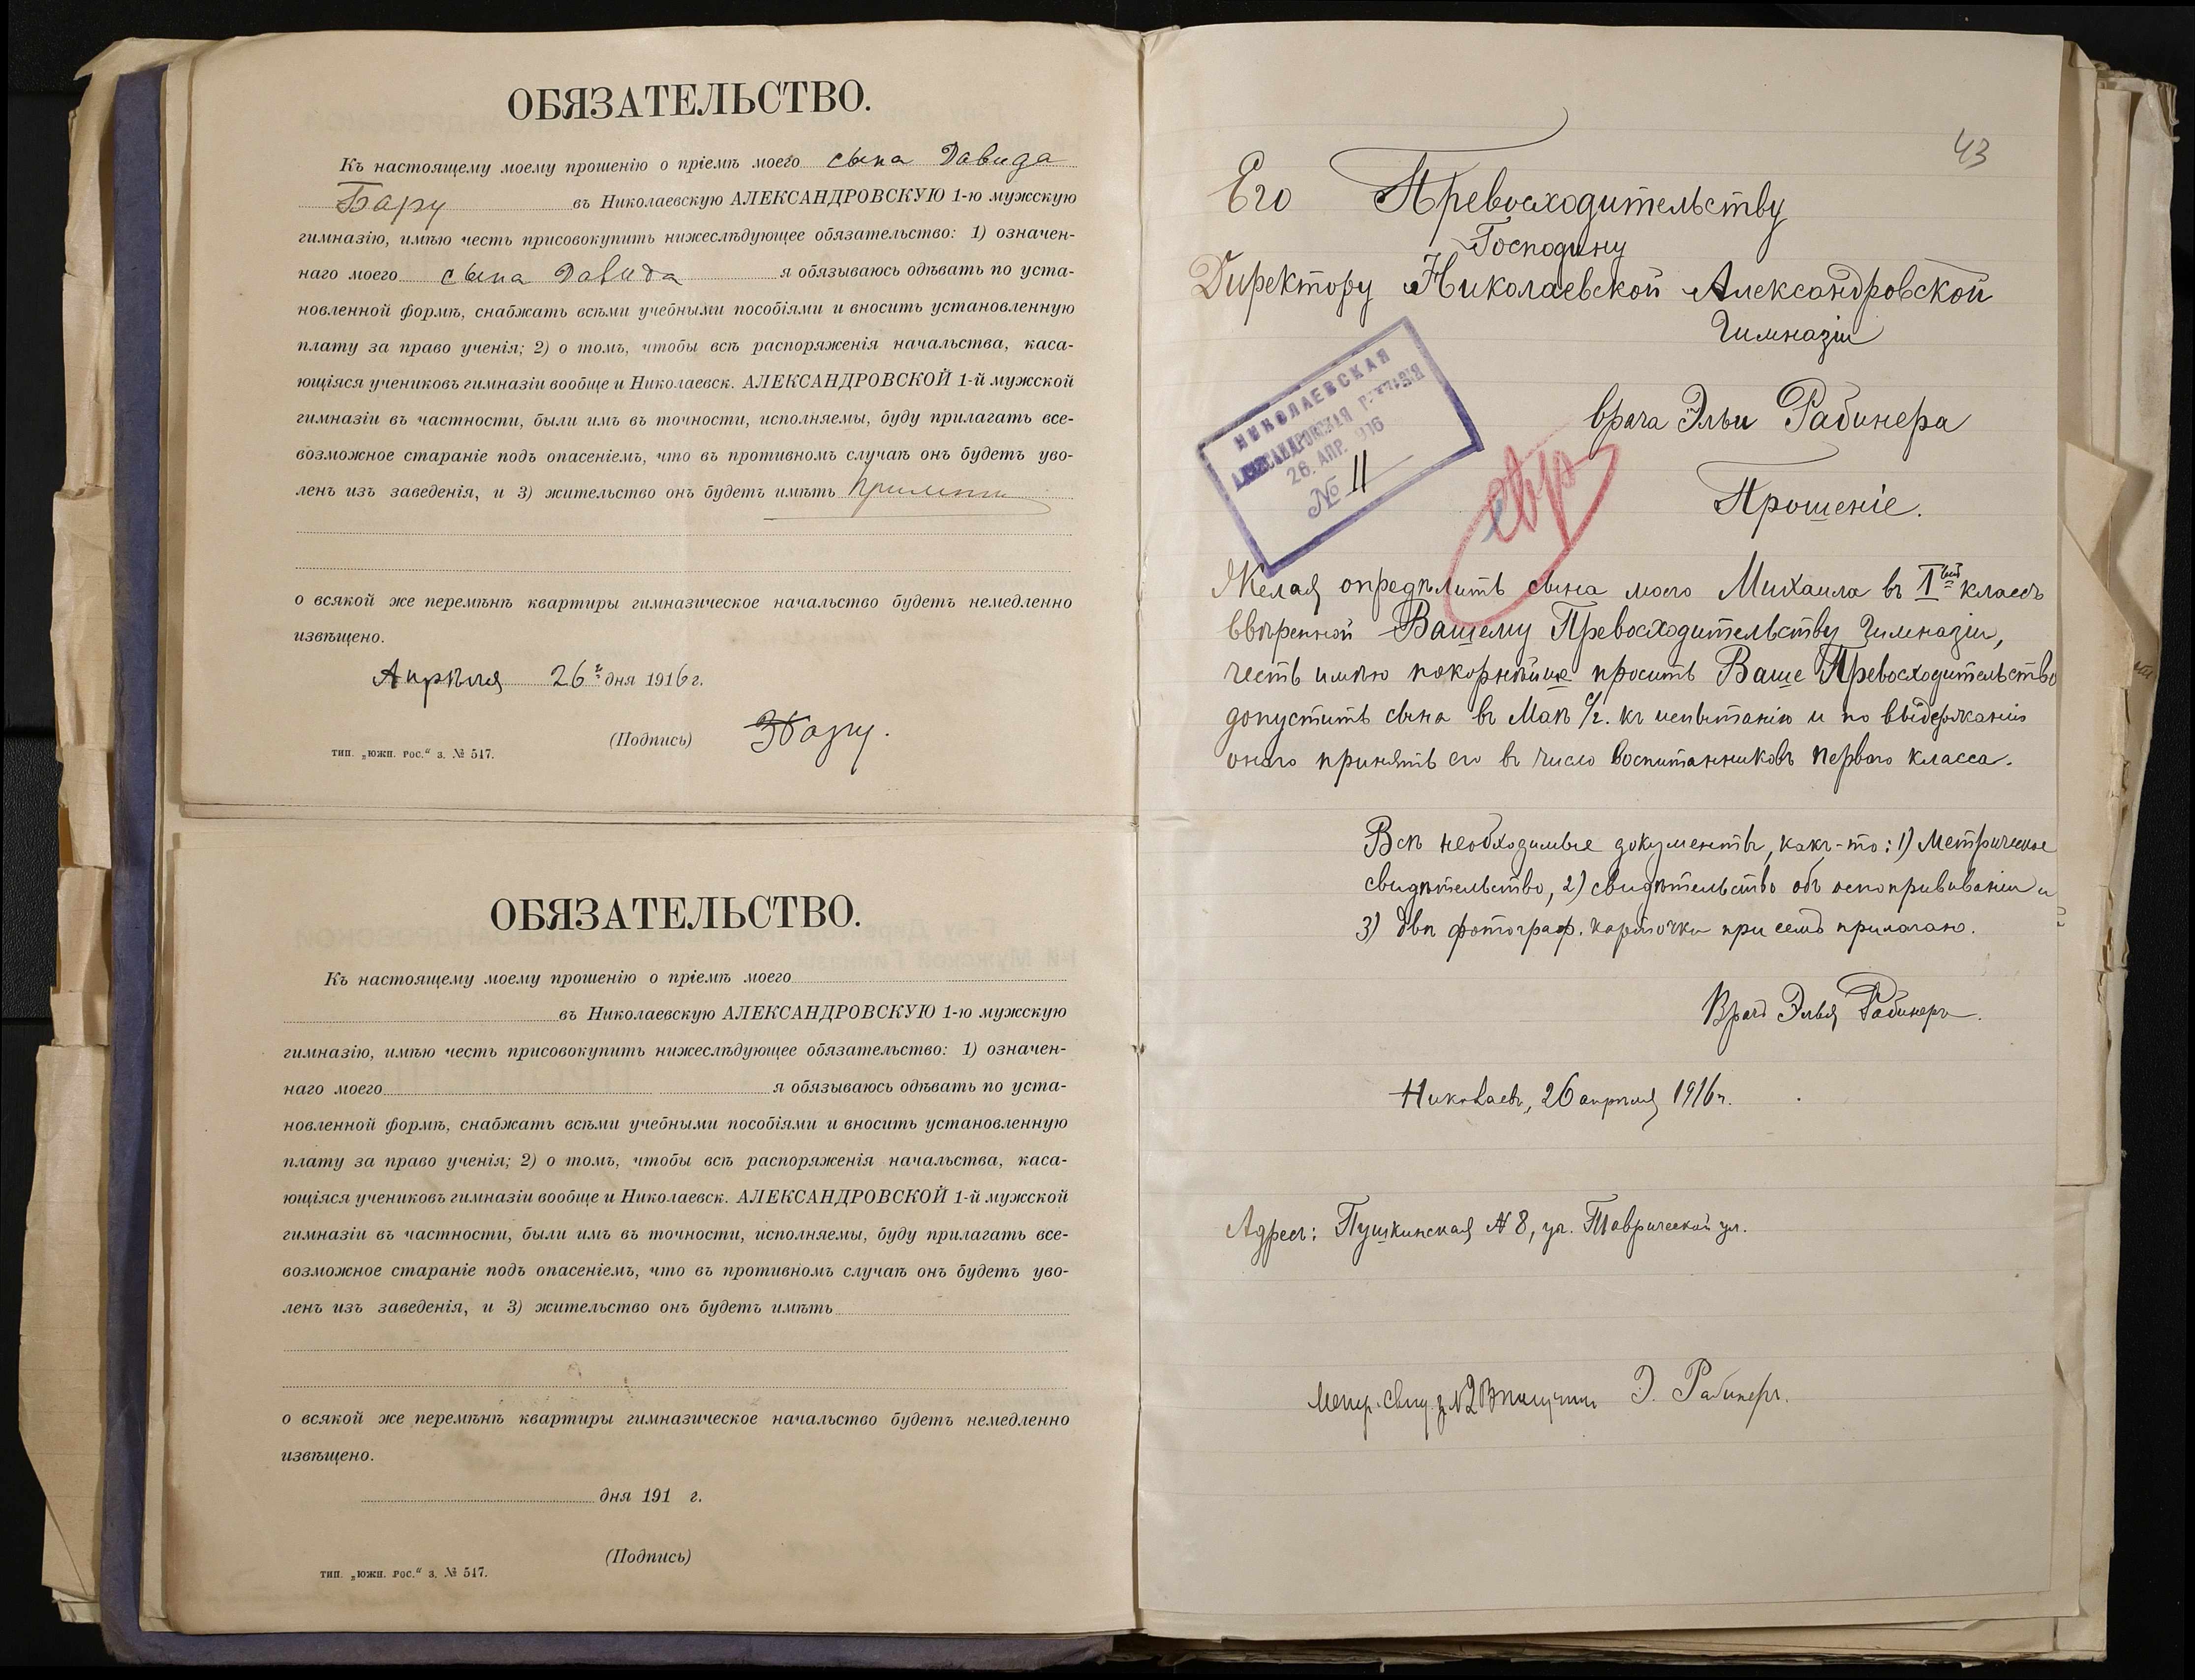 ОБЯЗАТЕЛЬСТВО.
Къ настоящему моему прошенію о пріемѣ моего сына Давида
Бару въ Николаевскую АЛЕКСАНДРОВСКУЮ 1-ю мужскую
гимназію, имѣю честь присовокупить нижеслѣдующее обязательство: 1) означен-
наго моего сына Давида я обязываюсь одѣвать по уста-
новленной формѣ, снабжать всѣми учебными пособіями и вносить установленную
плату за право ученія; 2) о томъ, чтобы всѣ распоряженія начальства, каса-
ющіяся учениковъ гимназіи вообще и Николаевск. АЛЕКСАНДРОВСКОЙ 1-й мужской
гимназіи въ частности, были имъ въ точности, исполняемы, буду прилагать все-
возможное стараніе подъ опасеніемъ, что въ противномъ случаѣ онъ будетъ уво-
ленъ изъ заведенія, и 3) жительство онъ будетъ имѣть
о всякой же перемѣнѣ квартиры гимназическое начальство будетъ немедленно
извѣщено.
Апрѣля 26 дня 1916 г.
(Подпись) ЗБару.
тип. „южн. рос.“ з. № 547.
ОБЯЗАТЕЛЬСТВО.
Къ настоящему моему прошенію о пріемѣ моего
въ Николаевскую АЛЕКСАНДРОВСКУЮ 1-ю мужскую
гимназію, имѣю честь присовокупить нижеслѣдующее обязательство: 1) означен-
наго моего я обязываюсь одѣвать по уста-
новленной формѣ, снабжать всѣми учебными пособіями и вносить установленную
плату за право ученія; 2) о томъ, чтобы всѣ распоряженія начальства, каса-
ющіяся учениковъ гимназіи вообще и Николаевск. АЛЕКСАНДРОВСКОЙ 1-й мужской
гимназіи въ частности, были имъ въ точности, исполняемы, буду прилагать все-
возможное стараніе подъ опасеніемъ, что въ противномъ случаѣ онъ будетъ уво-
ленъ изъ заведенія, и 3) жительство онъ будетъ имѣть
о всякой же перемѣнѣ квартиры гимназическое начальство будетъ немедленно
извѣщено.
дня 191 г.
(Подпись)
тип. „южн. рос.“ з. № 547.
43
Его Превосходительству
Господину
Директору Николаевской Александровской
Гимназіи
НИКОЛАЕВСКАЯ
АЛЕКСАНДРОВСКАЯ
26. АПР. 916
№ 11
врача Эльи Рабинера
евр
Прошеніе.
Желая опредѣлить сына моего Михаила въ I<sup>ый</sup> классъ
ввѣренной Вашему Превосходительству Гимназіи,
честь имѣю покорнѣйше просить Ваше Превосходительство
допустить сына въ Маѣ с/г. къ испытанію и по выдержаніи
онаго принять его въ число воспитанниковъ перваго класса.
Всѣ необходимые документы, какъ-то: 1) Метрическое
свидѣтельство, 2) свидѣтельство объ оспопрививаніи и
3) двѣ фотограф. карточки при семъ прилагаю.
Врачъ Элья Рабинеръ.
Николаевъ, 26 апрѣля 1916 г.
Адресъ: Пушкинская № 8, уг. Таврической ул.
Метр. свид. з. № 2 получилъ Э. Рабинеръ.